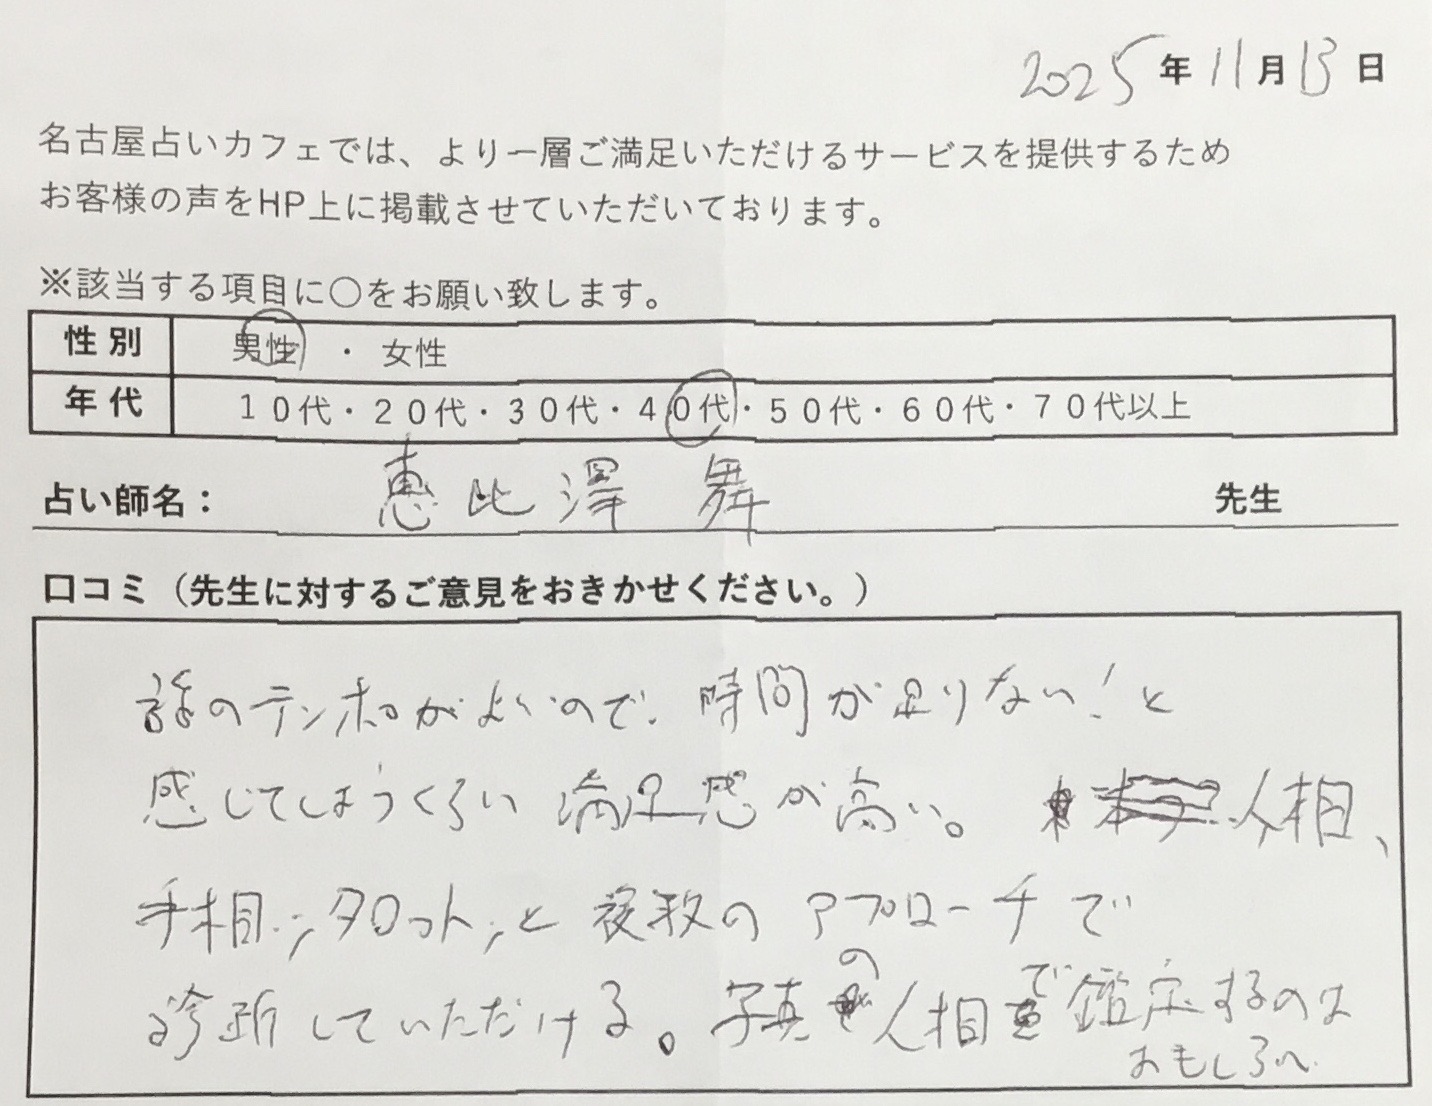 2025年11月13日
名古屋占いカフェでは、より一層ご満足いただけるサービスを提供するため
お客様の声をHP上に掲載させていただいております。
※該当する項目に○をお願い致します。
性別 男性 ・ 女性
年代 10代・20代・30代・40代・50代・60代・70代以上
占い師名： 恵比澤 舞 先生
口コミ（先生に対するご意見をおきかせください。）
話のテンポがよいので、時間が足りない！と
感じてしまうくらい満足感が高い。 人相、
手相、タロット、と複数のアプローチで
診断していただける。写真の人相で鑑定するのは
おもしろい